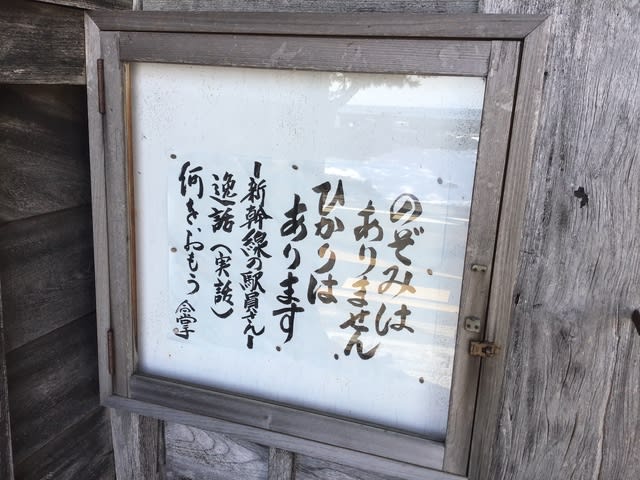 のぞみは
ありません
ひかりは
あります
ー新幹線の駅員さんー
逸話（実話）
何をおもう 合掌